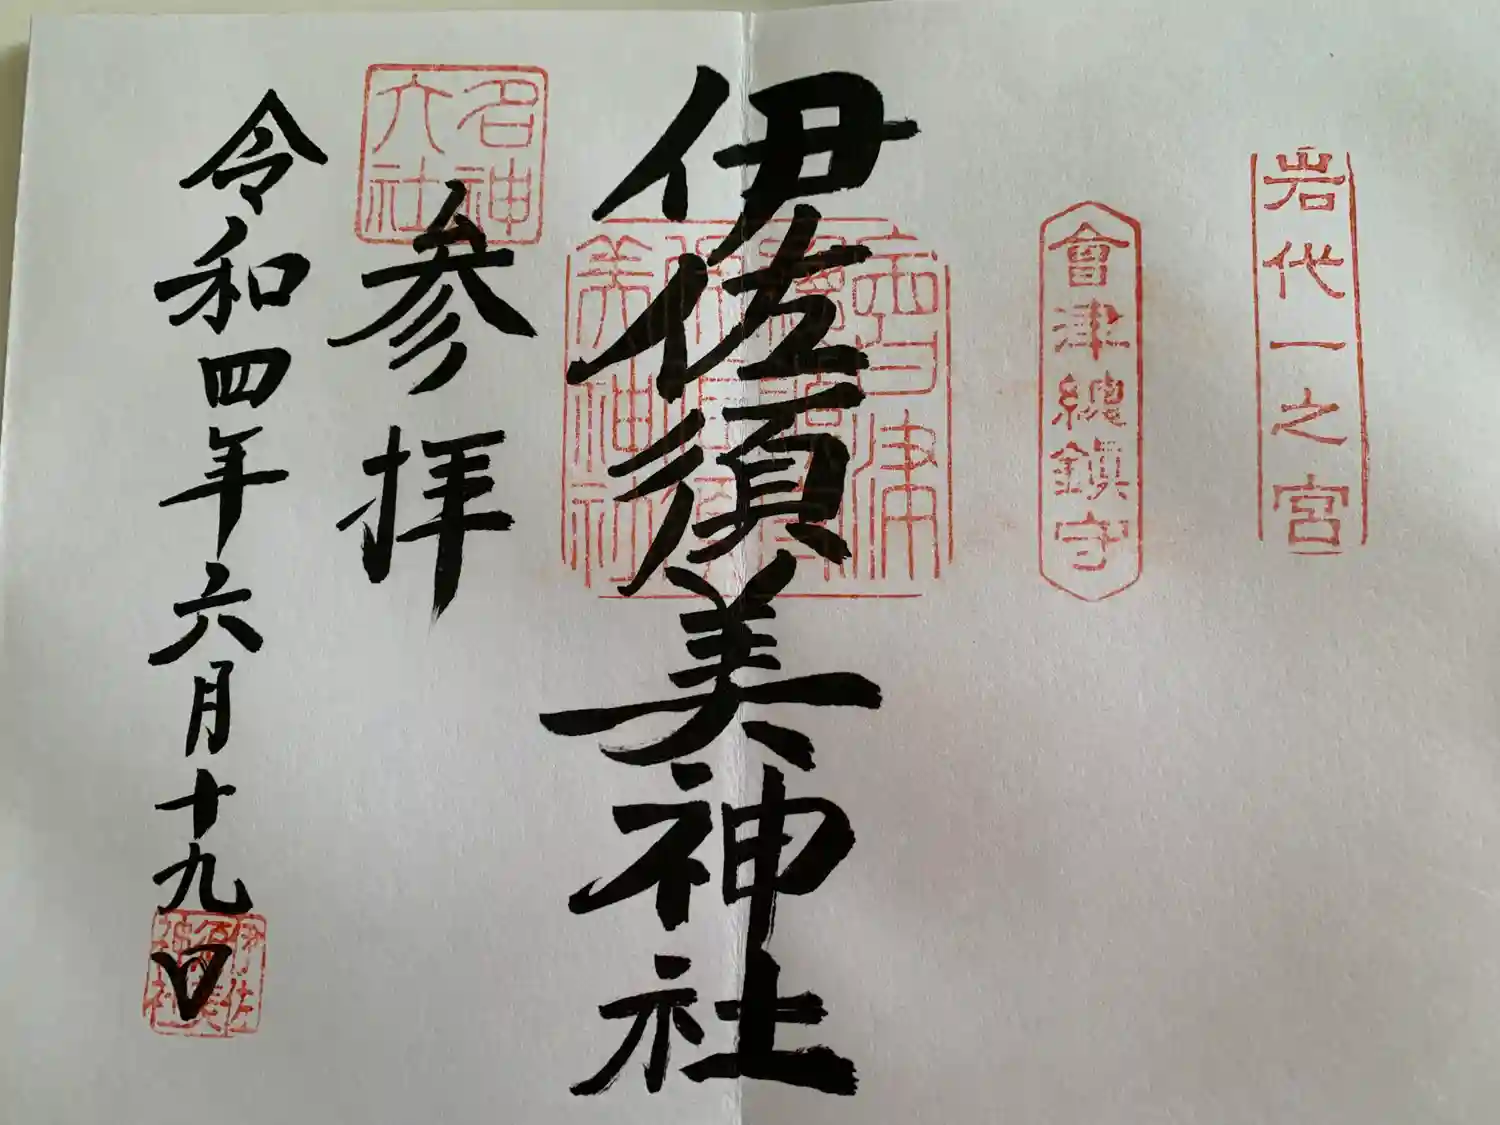 岩代一之宮
會津總鎮守
伊佐須美神社
會津
美神社
参拝
名神
大社
令和四年六月十九日
伊佐
須美
神社